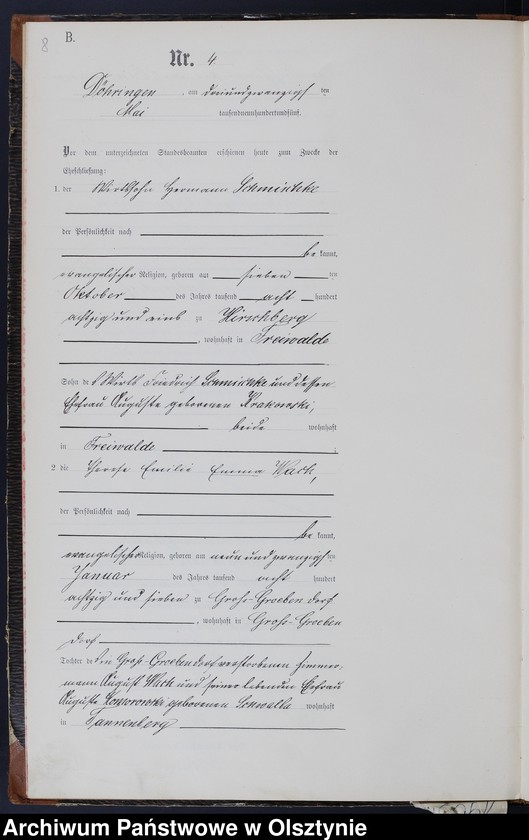 8 B.
Nr. 4
Döhringen, am dreiundzwanzigsten
Mai tausendneunhundertundfünf.
Vor dem unterzeichneten Standesbeamten erschienen heute zum Zwecke der
Eheschließung:
1. der Wirthssohn Hermann Schmischke
der Persönlichkeit nach
be kannt,
evangelischer Religion, geboren am sieben ten
Oktober des Jahres tausend acht hundert
achtzig und eins zu Hirschberg
, wohnhaft in Freiwalde
Sohn des Wirts Friedrich Schmischke und dessen
Ehefrau Auguste geborenen Krakowski,
beide wohnhaft
in Freiwalde ;
2 die Therese Emilie Emma Wach,
der Persönlichkeit nach
be kannt,
evangelischer Religion, geboren am neun und zwanzigsten
Januar des Jahres tausend acht hundert
achtzig und sieben zu Groß-Groeben dorf
, wohnhaft in Groß-Groeben
dorf
Tochter des in Groß-Groebendorf verstorbenen Zimmer-
mann August Wach und seiner lebenden Ehefrau
Auguste geborenen wohnhaft
in Tannenberg
Archiwum Państwowe w Olsztynie